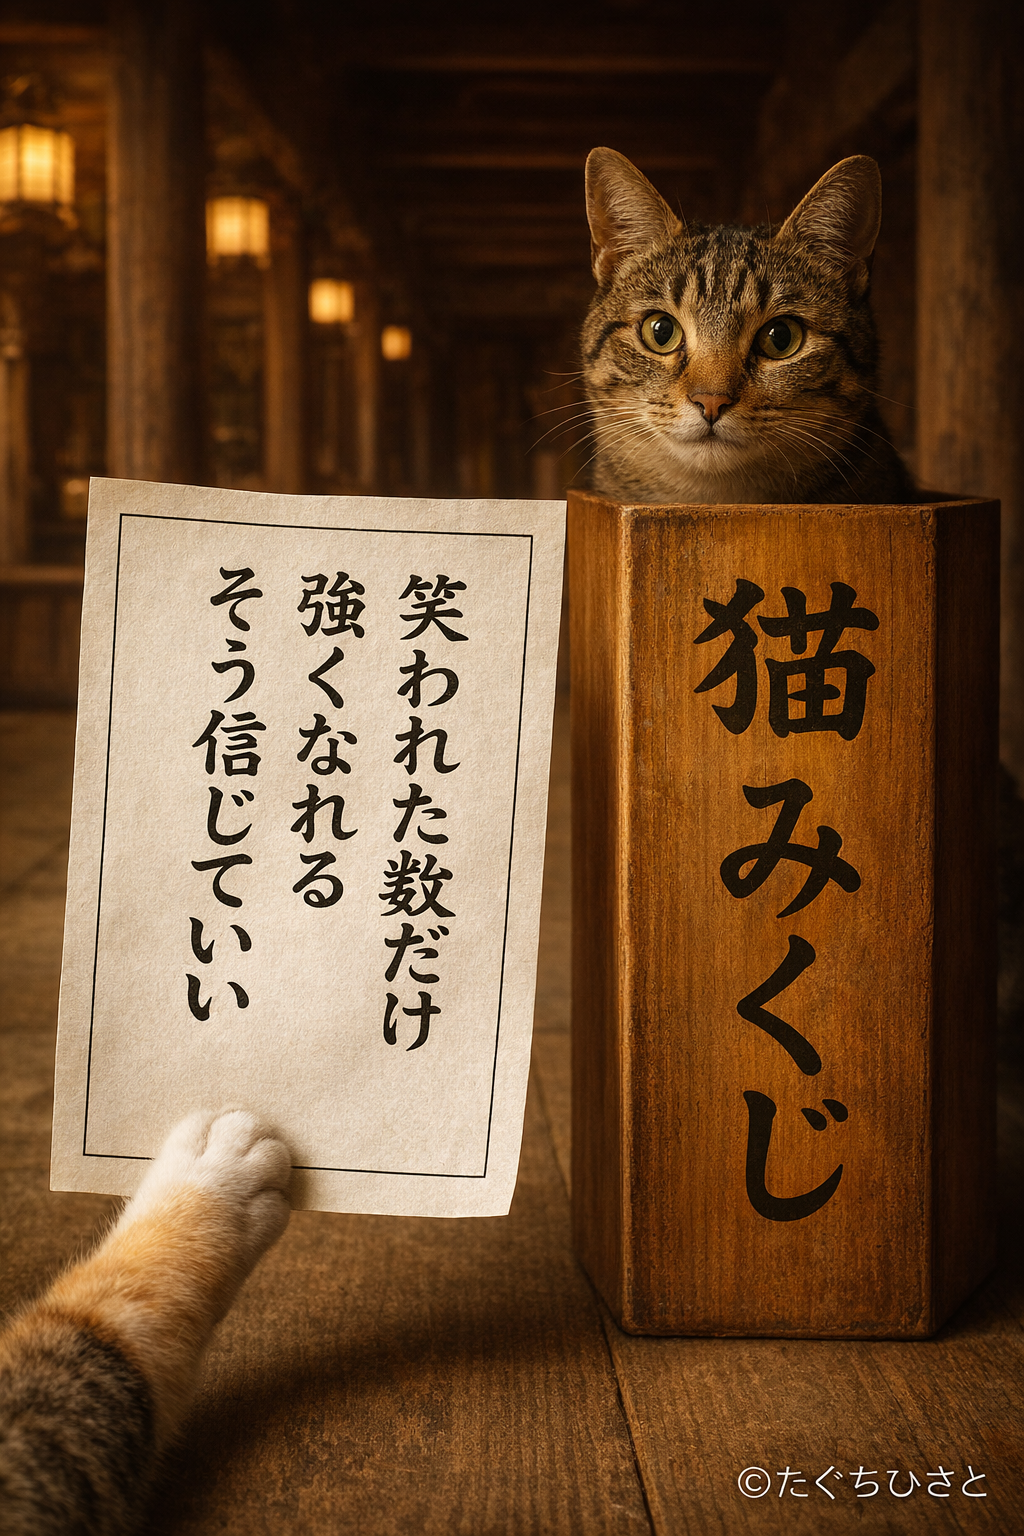 笑われた数だけ
強くなれる
そう信じていい
猫みくじ
©たぐちひさと